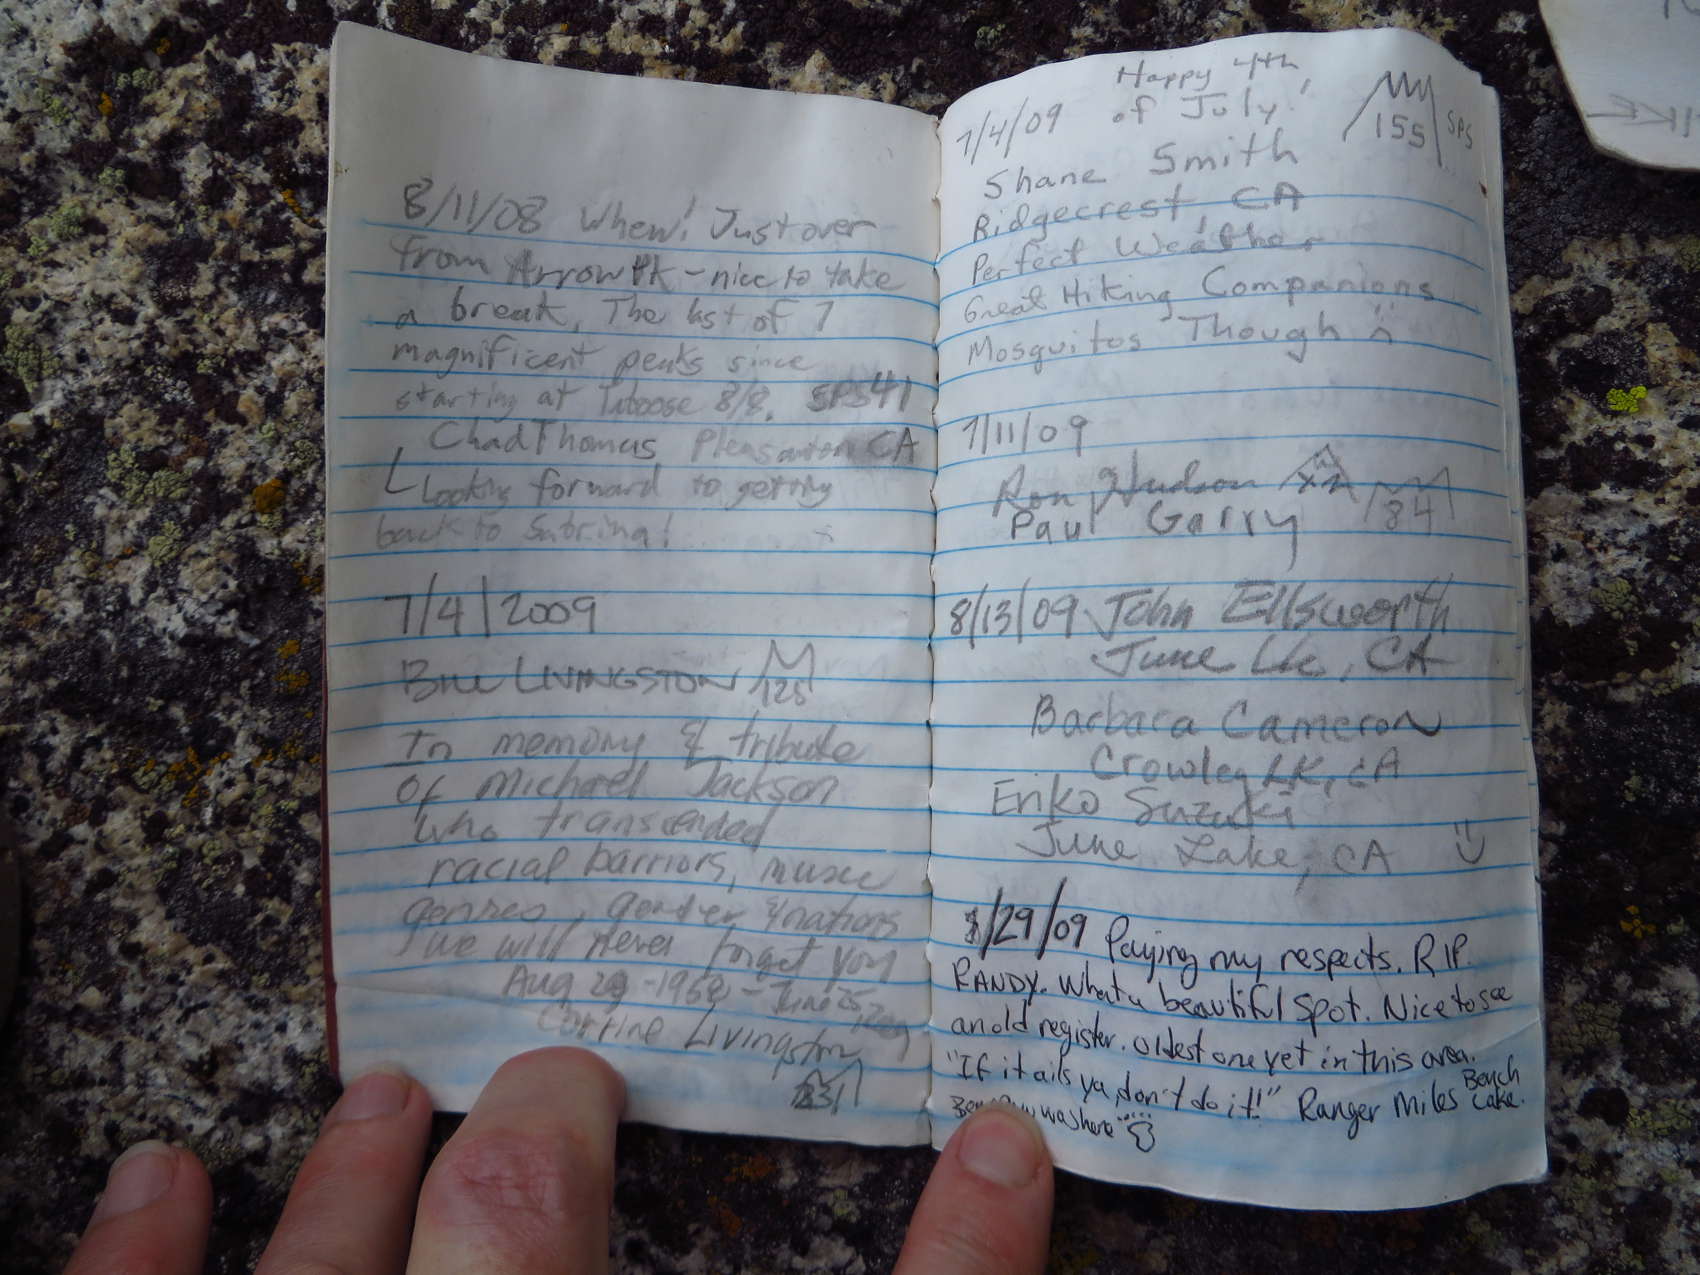 8/11/08 Whew! Just over
from Arrow Pk - nice to take
a break. The last of 7
magnificent peaks since
starting at Taboose 8/8. SPS 41
Chad Thomas Pleasanton CA
Looking forward to getting
back to Sabrina!
7/4/2009
BILL LIVINGSTON 125
In memory & tribute
of Michael Jackson
who transcended
racial barriors, music
genres, gender & nations
we will never forget you
Aug 29 - 1958 - June 25, 2009
Corrine Livingston
Happy 4th
7/4/09 of July!
155 SPS
Shane Smith
Ridgecrest, CA
Perfect Weather
Great Hiking Companions
Mosquitos Though
7/11/09
Ron Hudson
Paul Garry 84
8/13/09 John Ellsworth
June Lk, CA
Barbara Cameron
Crowley LK, CA
Eriko Suzuki
June Lake, CA
/29/09 Paying my respects. RIP
RANDY. What a beautiful spot. Nice to see
an old register. Oldest one yet in this area.
"If it ails ya, don't do it!" Ranger Miles Bench Lake.
was here